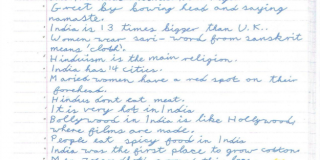 Greet by bowing head and saying
namaste.
India is 13 times bigger than U.K..
Women wear sari - word from sanskrit
means 'cloth'.
Hinduism is the main religion.
India has 14 cities.
Maried women have a red spot on their
forehead.
Hindus dont eat meat.
It is very hot in India
Bollywood in India is like Hollywood
where films are made.
People eat spicy food in India
India was the first place to grow cotton